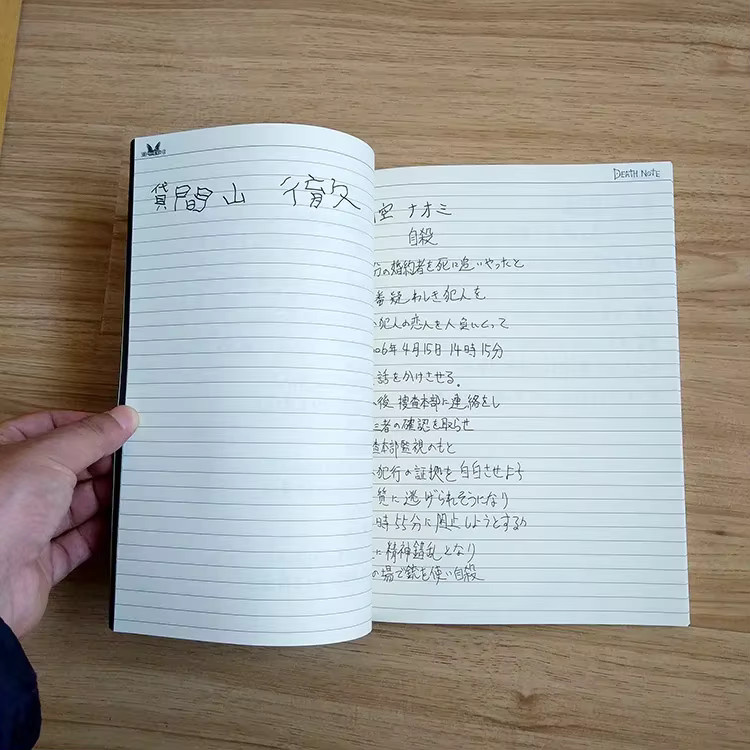 貸間山 徹
DEATH NOTE
空 ナオミ
自殺
分の婚約者を死に追いやったと
番疑わしき犯人を
犯人の恋人を人負にとって
06年4月15日 14時15分
話をかけさせる.
後 捜査本部に連絡をし
三者の確認を取らせ
査本部監視のもと
犯行の証拠を自白させよう
質に逃げられそうになり
時55分に阻止しようとするが
に精神錯乱となり
の場で銃を使い自殺